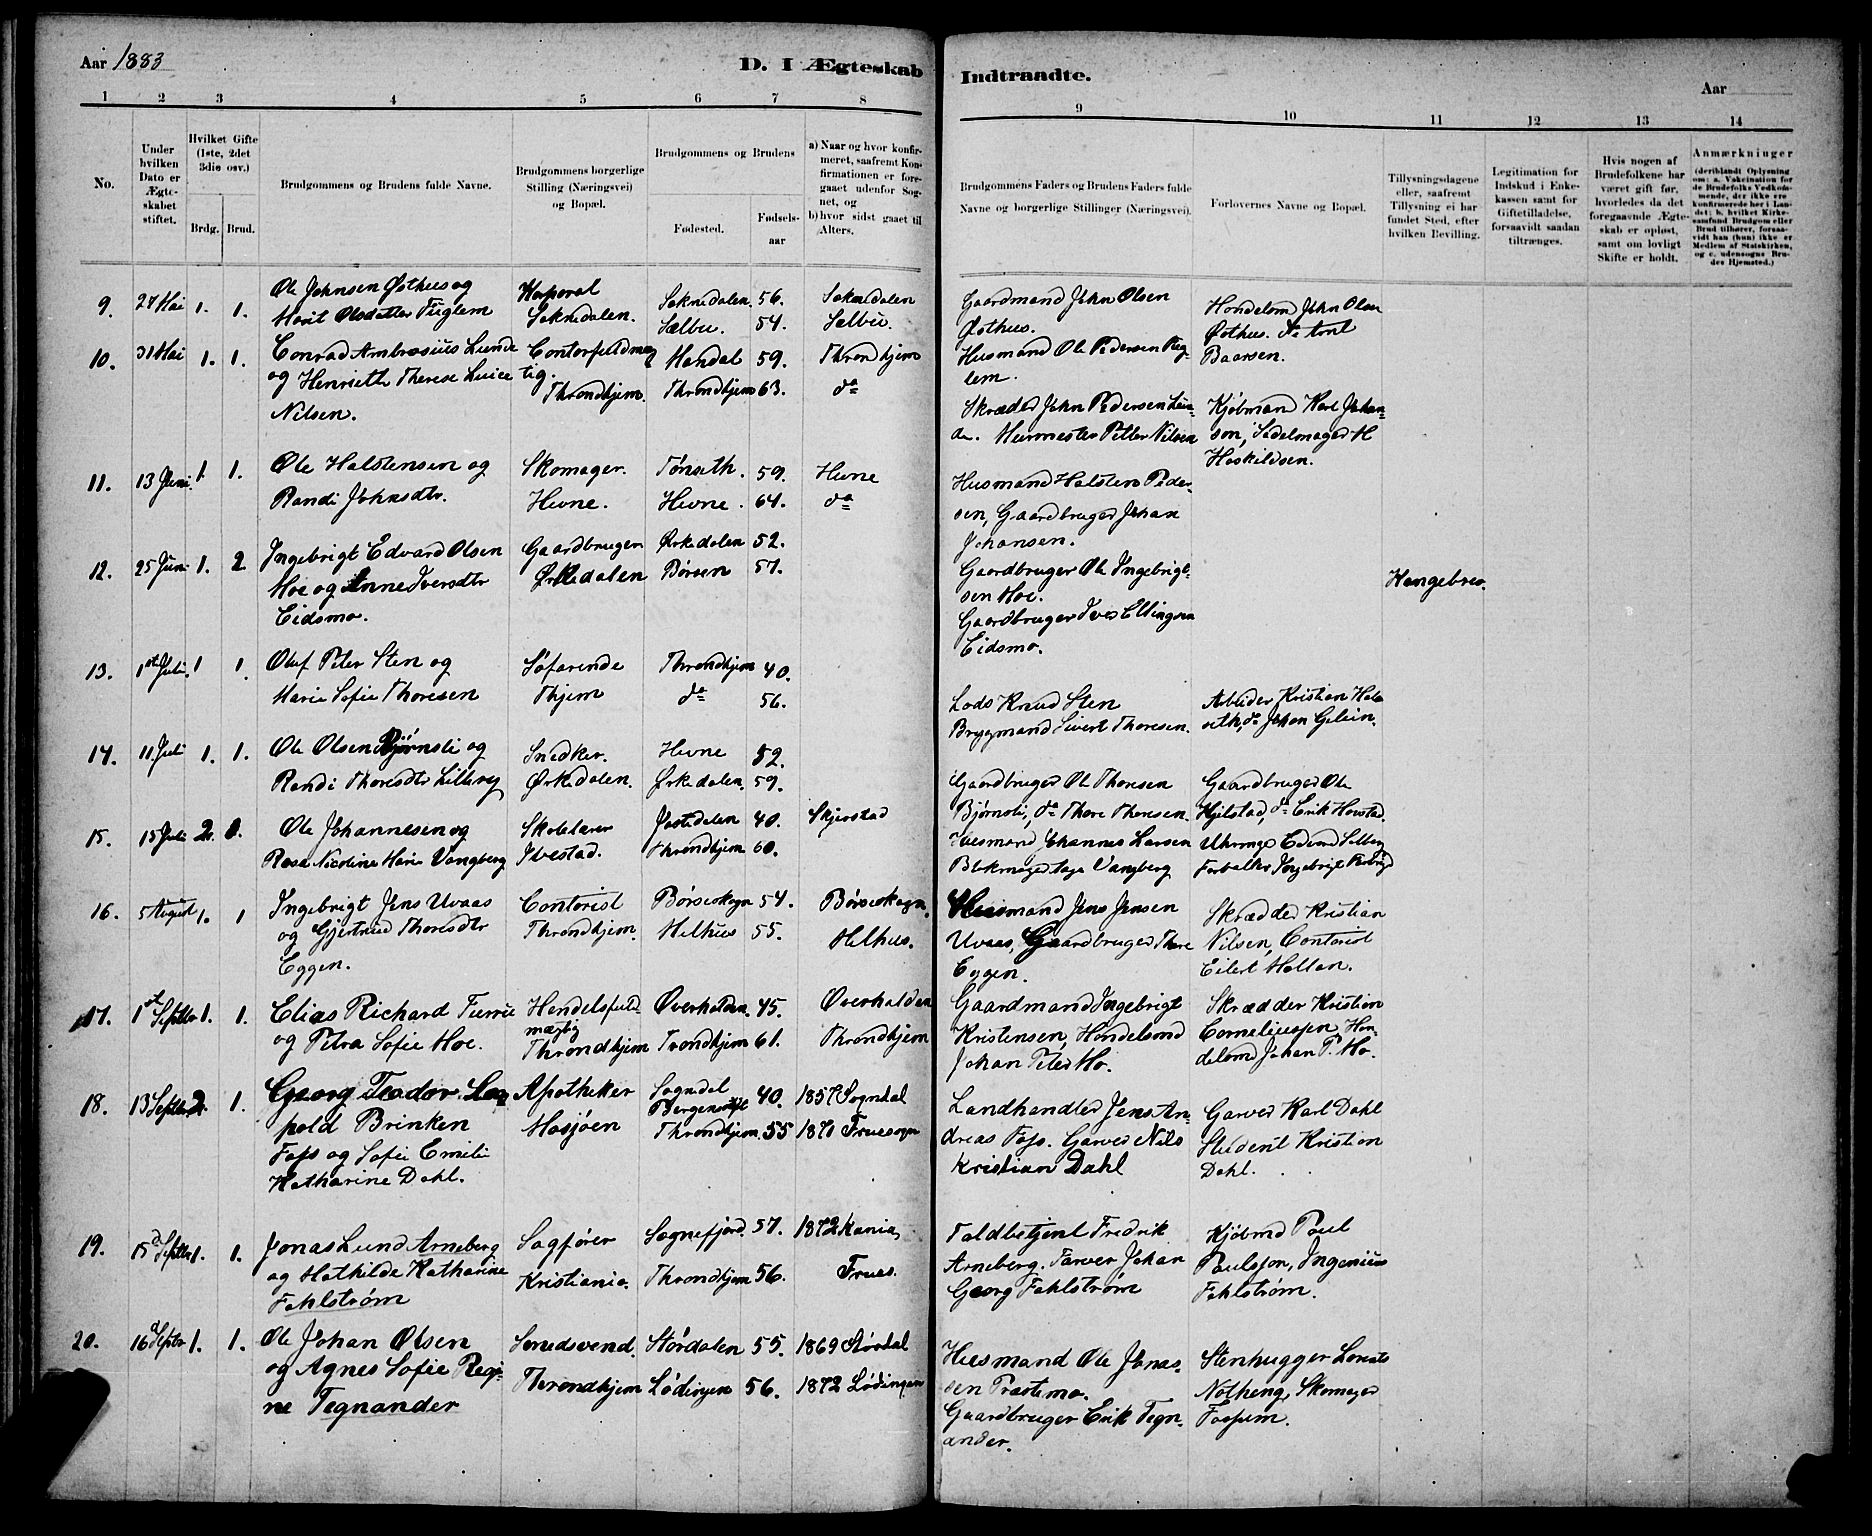 Aar 1883
D. I Ægteskab Indtraadte.
Aar
1 2 3 4 5 6 7 8 9 10 11 12 13 14
No.
Under hvilken Dato er Ægteskabet stiftet.
Hvilket Gifte (1ste, 2det 3die osv.)
Brdg. Brud.
Brudgommens og Brudens fulde Navne.
Brudgommens borgerlige Stilling (Næringsvei) og Bopæl.
Brudgommens og Brudens
Fødested.
Fødsels-aar
a) Naar og hvor konfirmeret, saafremt Konfirmationen er foregaaet udenfor Sognet, og
b) hvor sidst gaaet til Alters.
Brudgommens Faders og Brudens Faders fulde Navne og borgerlige Stillinger (Næringsvei).
Forlovernes Navne og Bopæl.
Tillysningsdagene eller, saafremt Tillysning ei har fundet Sted, efter hvilken Bevilling.
Legitimation for Indskud i Enkekassen samt for Giftetilladelse, forsaavidt saadan tiltrænges.
Hvis nogen af Brudefolkene har været gift før, hvorledes da det foregaaende Ægteskab er opløst, samt om lovligt Skifte er holdt.
Anmærkninger
(deriblandt Oplysning om: a. Vakcination for de Brudefolks Vedkommende, der ikke ere konfirmerede her i Landet; b. hvilket Kirkesamfund Brudgom eller Brud tilhører, forsaavidt han (hun) ikke er Medlem af Statskirken, og c. udensogns Brudes Hjemsted.)
9. 27 Mai 1. 1.
Ole Johnsen Østhus og
Marit Olsdatter Fuglem
Korporal
Soknedalen.
Soknedalen. 56. Soknedalen
Sælbu. 54. Selbu.
Gaardmand John Olsen
Østhus.
Husmand Ole Pedersen Fug-
lem.
Handelsmd John Olsen
Østhus. Arnt
Baarsen.
10. 31 Mai 1. 1.
Conrad Ambrosius Lunde
og Henriette Therese Luice
Nilsen.
Contorfuldmæg
tig.
Throndhjem.
Mandal 59. Throndhjem
Throndhjem 63. do
Skræder John Pedersen Lun-
de. Murmester Petter Nilsen
Kjøbmand Karl Johan-
sen, Sadelmager M
Hoskildsen.
11. 13 Juni 1. 1.
Ole Halstensen og
Randi Johnsdtr.
Skomager.
Hevne.
Tønseth. 59. Hevne
Hevne. 64. do
Husmand Halsten Peder-
sen, Gaardbruger Johan
Johansen.
12. 25 Juni 1. 2.
Ingebrigt Edvard Olsen
Moe og Anne Iversdtr
Eidsmo.
Gaardbruger
Ørkedalen
Ørkedalen 52.
Børsen 57.
Gaardbruger Ole Ingebrigt-
sen Moe.
Gaardbruger Iver Ellingsen
Eidsmo.
Kongebrev.
13. 1st Juli. 1 1.
Oluf Peter Sten og
Marie Sofie Thoresen
Søfarende
Thjem
Throndhjem 40.
do 56.
Lods Knud Sten
Brygmand Sivert Thoresen.
Arbeider Kristian Hals
seth, do Johan Gilein.
14. 11 Juli 1. 1.
Ole Olsen Bjørnsli og
Randi Thoresdtr Lillerey
Snedker.
Ørkedalen.
Hevne 52.
Ørkedalen 59.
Gaardbruger Ole Thoresen
Bjørnsli, do Thore Thoresen.
Gaardbruger Ole
Hjelstad, do Erik Hovstad.
15. 15 Juli 2. 1.
Ole Johannesen og
Rosa Nicoline Marie Vangberg
Skolelærer
Ibestad.
Jostedalen 40. Skjerstad
Throndhjem 60.
Husmand Johannes Larsen
Blikmager Vangberg
Uhrmager Edvard Solberg
Forvalter Ingebrigt
16. 5 August 1. 1
Ingebrigt Jens Uvaas
og Gjertrud Thoresdtr
Eggen.
Contorist
Throndhjem.
Børseskogn 54. Børseskogn.
Melhus 55. Melhus.
Husmand Jens Jensen
Uvaas, Gaardbruger Thore
Eggen.
Skrædder Kristian
Nilsen, Contorist
Eilert Moltan.
17. 1st Septbr 1. 1.
Elias Richard Furrue
og Petra Sofie Moe.
Handelsfuld-
mægtig
Throndhjem
Overhalden. 45. Overhalden
Trondhjem 61. Throndhjem
Gaardmand Ingebrigt
Kristensen, Handelsmd
Johan Peter Mo.
Skrædder Kristian
Corneliussen, Han-
delsmd Johan P. Mo.
18. 13 Septbr 2. 1.
Georg Teodor Leo
pold Brinken
Foss og Sofie Emilie
Katharine Dahl.
Apotheker
Mosjøen
Sogndal
Bergens
40. 1857 Sogndal
Throndhjem. 55 1871 Fruesogn
Landhandler Jens An-
dreas Foss. Garver Nils
Kristian Dahl
Garver Karl Dahl
Student Kristian
Dahl.
19. 15d Septbr 1. 1.
Jonas Lund Arneberg
og Mathilde Katharine
Fahlstrøm
Sagfører
Kristiania.
Sognefjord 57. 1872 Kania
Throndhjem 56. Frues.
Toldbetjent Fredrik
Arneberg. Farver Johan
Georg Fahlstrøm
Kjøbmd Paul
Paulsson, Ingeniør
Fahlstrøm.
20. 16d Septbr 1. 1.
Ole Johan Olsen
og Agnes Sofie Regi-
ne Tegnander
Smedsvend.
Throndhjem
Størdalen 55. 1869 Størdal
Lødingen 56. 1872 Lødingen
Husmand Ole Jonas-
sen Prestemo.
Gaardbruger Erik Tegn-
ander.
Stenhugger Lorents
Notheng, Skomager
Fossum.